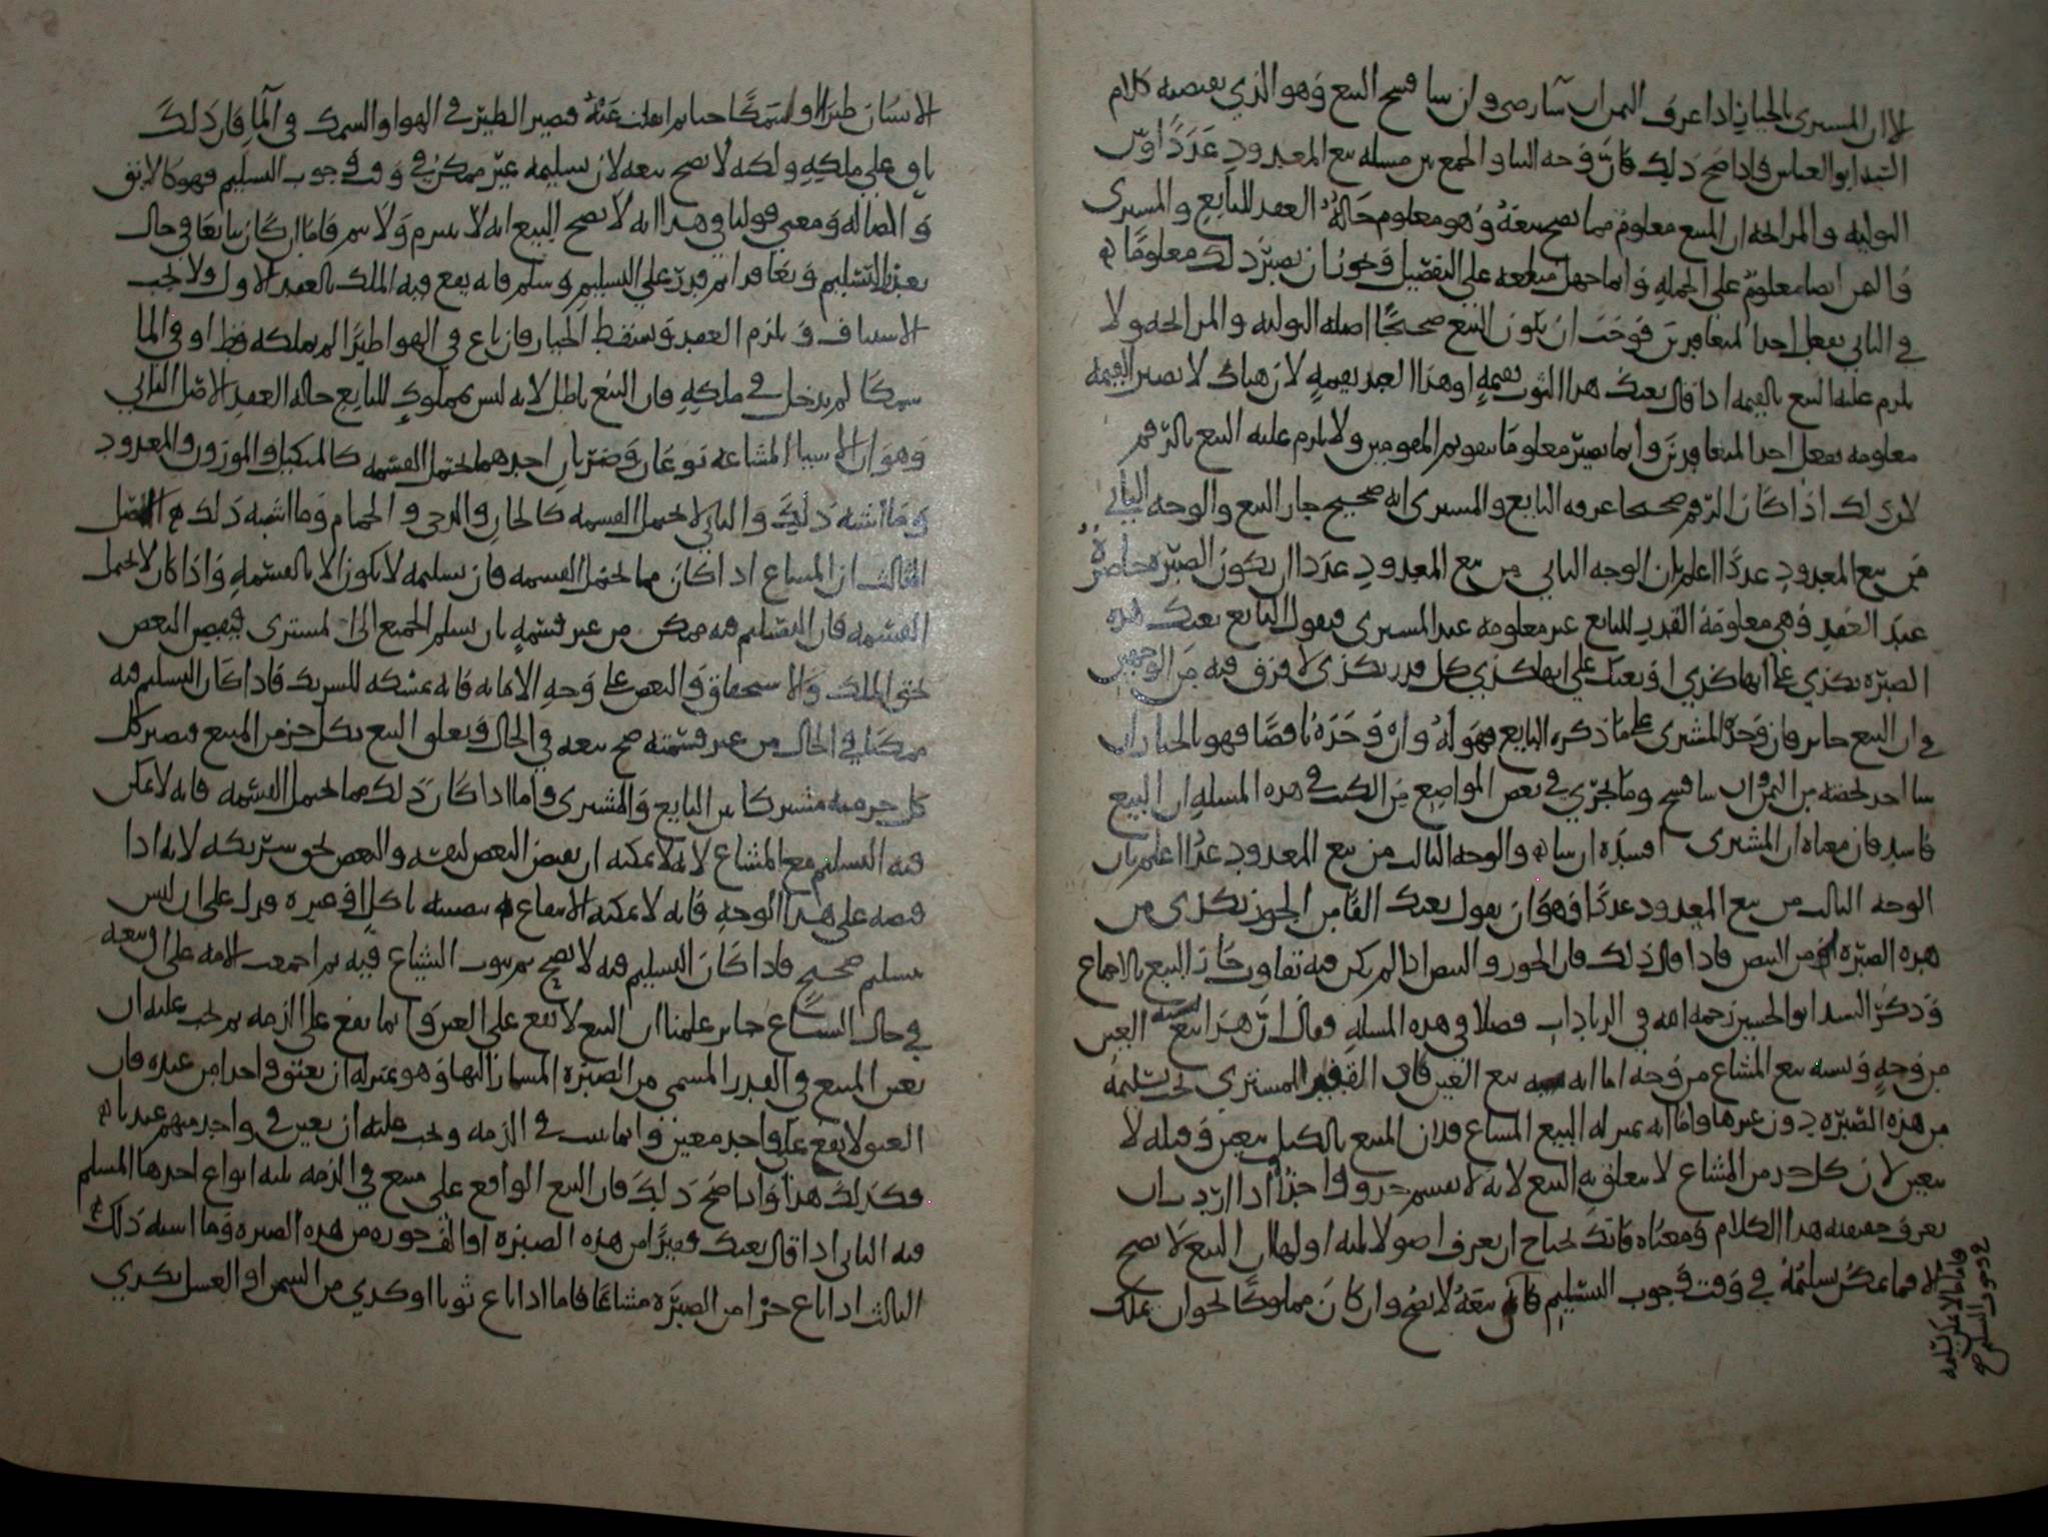 لا ان المشتري بالخيار اذا عرف الثمن ان شا رضي وان شا فسخ البيع وهو الذي يقتضيه كلام
السيد ابو العباس فاذا صح ذلك كان وجه البنا والجمع بين مسله بيع المعدود عددا وبين
التوليه والمرابحه ان المبيع معلوم مما يصح بيعه وهو معلوم حاله العقد للبايع والمشتري
والثمن ايضا معلوم على الجمله وانما جهل مبلغه على التفصيل ويجوز ان يصير ذلك معلوما
في الثاني بفعل احد المتعاقدين فوجب ان يكون البيع صحيحا اصله التوليه والمرابحه ولا
يلزم عليه البيع بالقيمه اذا قال بعتك هذا الثوب بقيمته او هذا العبد بقيمته لان هناك لا تصير القيمه
معلومه بفعل احد المتعاقدين وانما يصير معلوما بتقويم المقومين ولا يلزم عليه البيع بالرقم
لان ذلك اذا كان الرقم صحيحا عرفه البايع والمشتري انه صحيح جاز البيع والوجه الثاني
من بيع المعدود عددا اعلم بان الوجه الثاني من بيع المعدود عددا ان يكون الصبره حاضرة
عند العقد وهي معلومة القدر للبايع غير معلومه عند المشتري فيقول البايع بعتك هذه
الصبره بكذي على انها كذي او بعتك على انها كذي كل قدر بكذي لا فرق فيه من الوجهين
في ان البيع جايز فان وجده المشتري على ما ذكره البايع فهو له وان وجده ناقصا فهو بالخيار ان
شا اخذ بحصته من الثمن وان شا فسخ وما يجري في بعض المواضع من الكتب في هذه المسله ان البيع
فاسد فان معناه ان المشتري افسده ان شا والوجه الثالث من بيع المعدود عددا اعلم بان
الوجه الثالث من بيع المعدود عددا فهو ان يقول بعتك الفا من الجوز بكذي من
هذه الصبره او من البيض فاذا قال ذلك فان الجوز والبيض اذا لم يكن فيه تفاوت جاز البيع بالاجماع
وذكر السيد ابو الحسين رحمه الله في الزيادات فصلا في هذه المسله وقال ان هذا البيع يشبه بيع العين
من وجه ويشبه بيع المشاع من وجه اما انه يشبه بيع العين فان القفيز المشتري يجب تسليمه
من هذه الصبره دون غيرها واما انه بمنزله البيع المشاع فلان المبيع بالكيل يتعين وقبله لا
يتعين لان كل جزء من المشاع لا يتعلق به البيع لانه لا ينقسم جزوا واحدا اذا اردت ان
تعرف حقيقه هذا الكلام ومعناه فانك تحتاج ان تعرف اصولا ثلثه اولها ان البيع لا يصح
الا فيما يمكن تسليمه في وقت وجوب التسليم فان بيعه لا يصح وان كان مملوكا نحو ان يملك
فاما ما لا يمكن تسليمه
في وجوب التسليم صح
الانسان طيرا او سمكا حيا ثم انفلت عنه فيصير الطير في الهوا والسمك في الما فان ذلك
باق على ملكه ولكنه لا يصح بيعه لان تسليمه غير ممكن في وقت وجوب التسليم فهو كالابق
والضاله ومعنى قولنا في هذا انه لا يصح البيع انه لا يبرم ولا يتم فاما ان كان بايعا في حال
تعذر التسليم وتعاقدا ثم قدر على التسليم وسلم فانه يقع فيه الملك بالعقد الاول ولا يجب
الاستيناف ويلزم العقد ويسقط الخيار فان باع في الهوا طيرا لم يملكه قط او في الما
سمكا لم يدخل في ملكه فان البيع باطل لانه ليس بمملوك للبايع حاله العقد الاصل الثاني
وهو ان الاشيا المشاعه نوعان وضربان احدهما يحتمل القسمه كالمكيل والموزون والمعدود
وما اشبه ذلك والثاني لا يحتمل القسمه كالخان والرحى والحمام وما اشبه ذلك الاصل
الثالث ان المشاع اذا كان مما يحتمل القسمه فان تسليمه لا يكون الا بالقسمه واذا كان لا يحتمل
القسمه فان التسليم فيه ممكن من غير قسمه بان يسلم الجميع الى المشتري فيقبض البعض
بحق الملك والاستحقاق والبعض على وجه الامانه فانه يمسكه للشريك فاذا كان التسليم فيه
ممكنا في الحال من غير قسمته صح بيعه في الحال وتعلق البيع بكل جزء من المبيع فيصير كل
كل جزء منه مشتركا بين البايع والمشتري واما اذا كان ذلك مما يحتمل القسمه فانه لا يمكن
فيه التسليم مع المشاع لانه لا يمكنه ان يقبض البعض لنفسه والبعض بحق شريكه لانه اذا
قبضه على هذا الوجه فانه لا يمكنه الانتفاع بنصيبه باكل او غيره فدل على ان ليس
بتسليم صحيح فاذا كان التسليم فيه لا يصح مع ثبوت الشياع فيه ثم اجمعت الامه على ان بيعه
في حال الشياع جايز علمنا ان البيع لا يقع على العين وانما يقع على الذمه ثم يجب عليه ان
يعين المبيع في القدر المسمى من الصبره المشار اليها وهو بمنزله ان يعتق واحدا من عبيده فان
العتق لا يقع على واحد معين وانما يثبت في الذمه ويجب عليه ان يعين في واحد منهم
فكذلك هذا واذا صح ذلك فان البيع الواقع على مبيع في الذمه ثلثه انواع احدها المسلم
فيه الثاني اذا قال بعتك قفيزا من هذه الصبره او الف جوزه من هذه الصبره وما اشبه ذلك
الثالث اذا باع جزا من الصبره مشاعا فاما اذا باع ثوبا او كذي من السمن او العسل بكذي